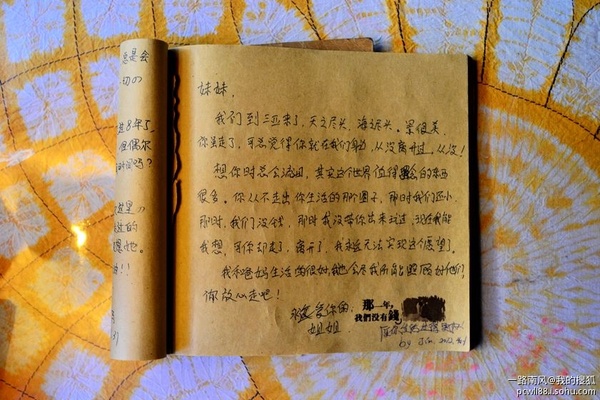 总是会
切の
8年了
但偶尔
时间吗?
这里
过的
!!
妹妹,
我们到三亚来了,天之尽头,海之尽头。景很美,
你虽走了,可总觉得你就在我们身边,从没离开过,从没!
想你时总会流泪,其实这个世界值得的东西
很多。你从不走出你生活的那个圈子,那时我们还小,
那时,我们没钱,那时我没带你出来玩过,现在我能
我想,可你却走了,离开了,我永远无法实现这个愿望了。
我和爸妈生活的很好,我也会尽我所能照顾好他们,
你放心走吧!
爱你的:
姐姐
那一年,
我們没有錢
by
一路南风@我的搜狐
pcwl88.i.sohu.com